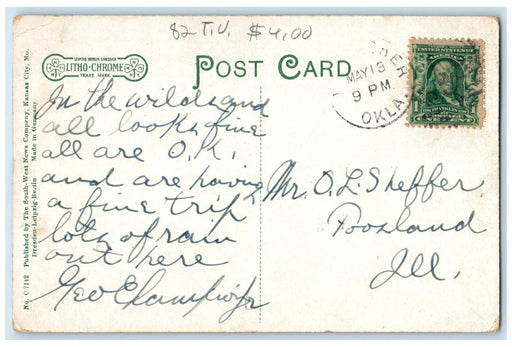 82 T.V. $4.00
LEIPZIG BERLIN DRESDEN
LITHO-CHROME
TRADE MARK
POST CARD
MAY 13
9 PM
OKLA.
UNITED STATES
No. C7142 Published by The South-West News Company, Kansas City, Mo.
Dresden-Leipzig-Berlin Made in Germany
In the wilds and
all looks fine
all are O.K.
and are having
a fine trip
lots of rain
out here
Geo
Mr. O. L. Sheffer
Foosland
Ill.